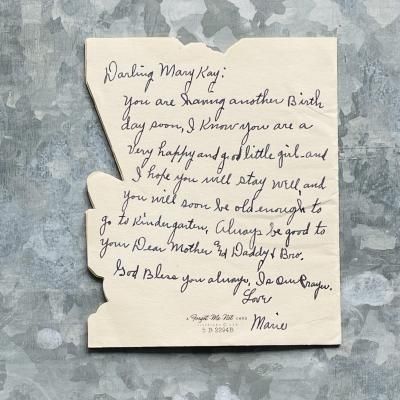 Darling Mary Kay:
You are having another Birth
day soon, I Know you are a
very happy and good little girl and
I hope you will stay well, and
you will soon be old enough to
go to Kindergarten, Always be good to
your Dear Mother and Daddy & Bro.
God Bless you always, Is Our Prayer.
Love
Marie
a Forget Me Not CARD
5 B 2294B